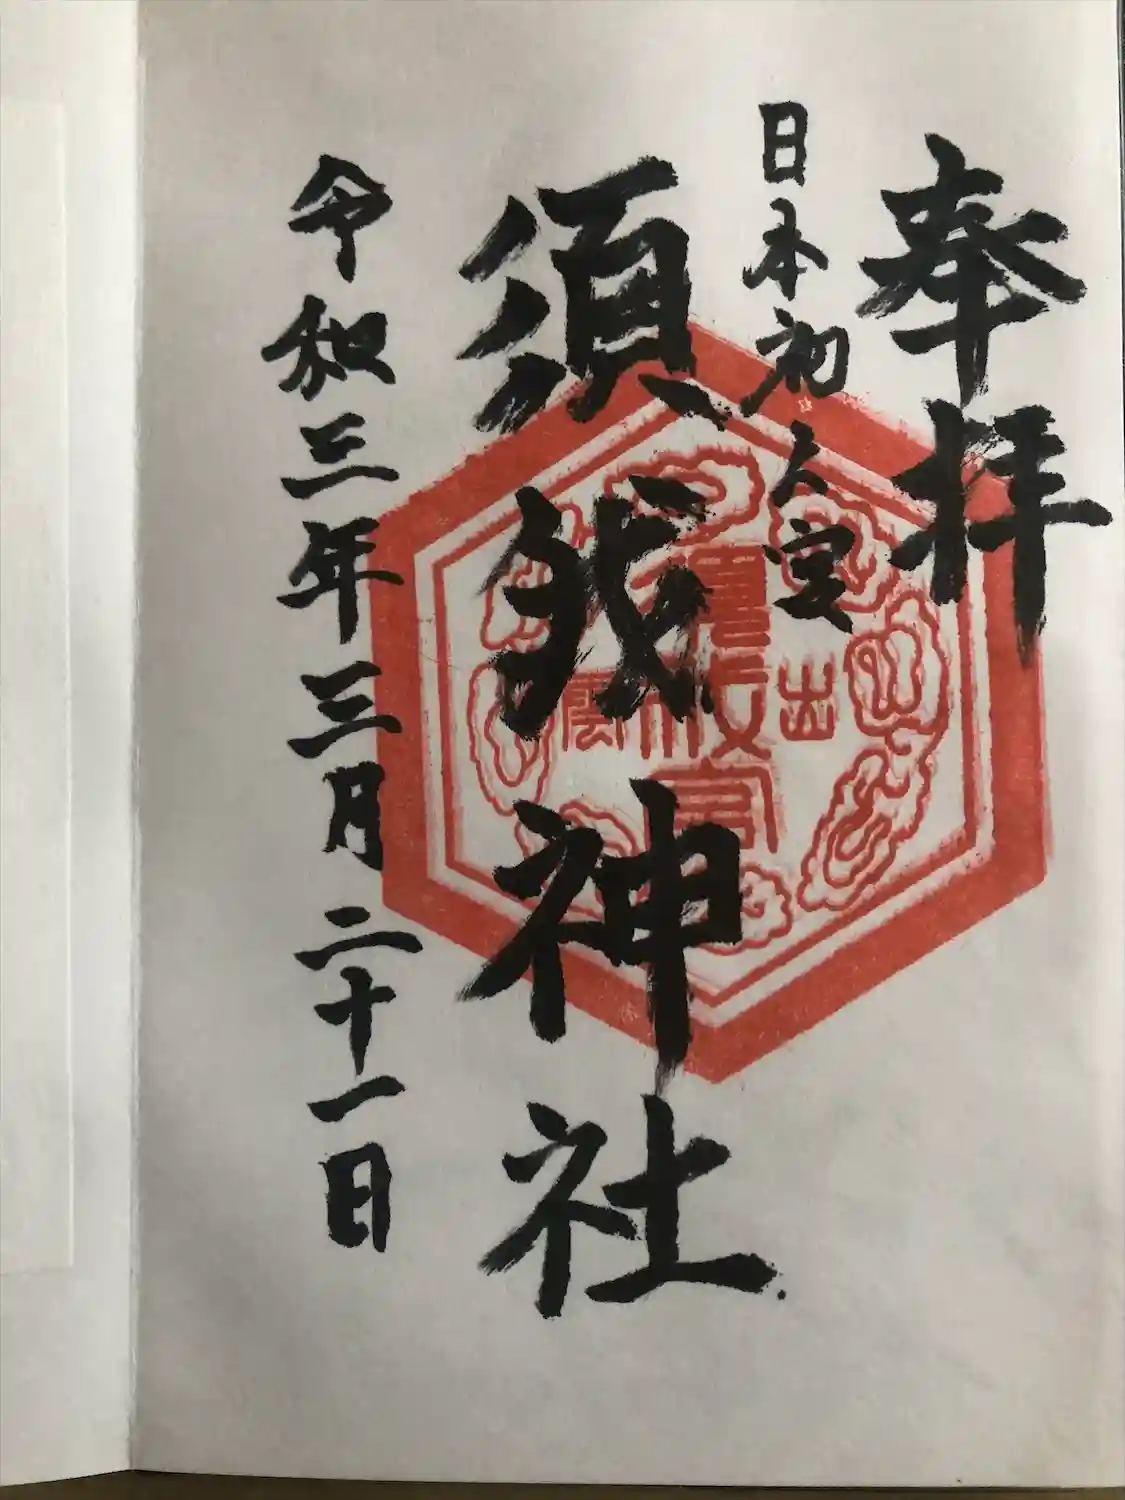 奉拝
日本初之宮
須我神社
令和三年三月二十一日
出
雲